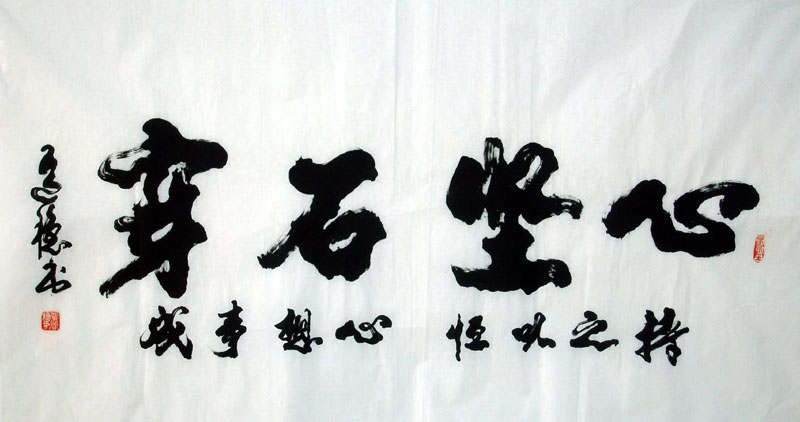 心坚石穿
持之以恒 心想事成
书